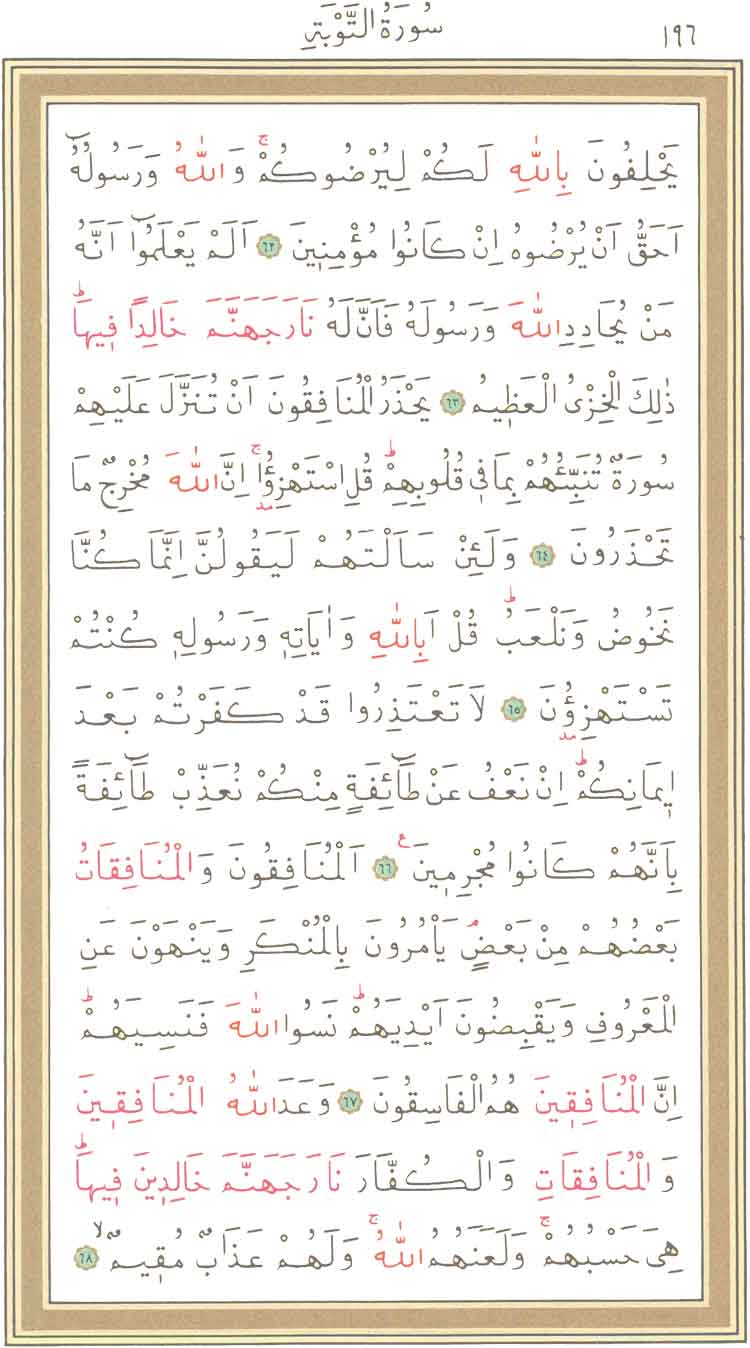 سُورَةُ التَّوْبَةِ ١٩٦
يَحْلِفُونَ بِاللّٰهِ لَكُمْ لِيُرْضُوكُمْۚ وَاللّٰهُ وَرَسُولُهُٓ
اَحَقُّ اَنْ يُرْضُوهُ اِنْ كَانُوا مُؤْمِنٖينَ ﴿٦٢﴾ اَلَمْ يَعْلَمُٓوا اَنَّهُ
مَنْ يُحَادِدِ اللّٰهَ وَرَسُولَهُ فَاَنَّ لَهُ نَارَ جَهَنَّمَ خَالِدًا فٖيهَاؕ
ذٰلِكَ الْخِزْىُ الْعَظٖيمُ ﴿٦٣﴾ يَحْذَرُ الْمُنَافِقُونَ اَنْ تُنَزَّلَ عَلَيْهِمْ
سُورَةٌ تُنَبِّئُهُمْ بِمَا فٖى قُلُوبِهِمْؕ قُلِ اسْتَهْزِؤُ۫اۚ اِنَّ اللّٰهَ مُخْرِجٌ مَا
تَحْذَرُونَ ﴿٦٤﴾ وَلَئِنْ سَاَلْتَهُمْ لَيَقُولُنَّ اِنَّمَا كُنَّا
نَخُوضُ وَنَلْعَبُؕ قُلْ اَبِاللّٰهِ وَاٰيَاتِهٖ وَرَسُولِهٖ كُنْتُمْ
تَسْتَهْزِؤُ۫نَ ﴿٦٥﴾ لَا تَعْتَذِرُوا قَدْ كَفَرْتُمْ بَعْدَ
اٖيمَانِكُمْؕ اِنْ نَعْفُ عَنْ طَٓائِفَةٍ مِنْكُمْ نُعَذِّبْ طَٓائِفَةً
بِاَنَّهُمْ كَانُوا مُجْرِمٖينَ ع ﴿٦٦﴾ اَلْمُنَافِقُونَ وَالْمُنَافِقَاتُ
بَعْضُهُمْ مِنْ بَعْضٍۢ يَاْمُرُونَ بِالْمُنْكَرِ وَيَنْهَوْنَ عَنِ
الْمَعْرُوفِ وَيَقْبِضُونَ اَيْدِيَهُمْؕ نَسُوا اللّٰهَ فَنَسِيَهُمْؕ
اِنَّ الْمُنَافِقٖينَ هُمُ الْفَاسِقُونَ ﴿٦٧﴾ وَعَدَ اللّٰهُ الْمُنَافِقٖينَ
وَالْمُنَافِقَاتِ وَالْكُفَّارَ نَارَ جَهَنَّمَ خَالِدٖينَ فٖيهَاؕ
هِىَ حَسْبُهُمْۚ وَلَعَنَهُمُ اللّٰهُۚ وَلَهُمْ عَذَابٌ مُقٖيمٌۙ ﴿٦٨﴾